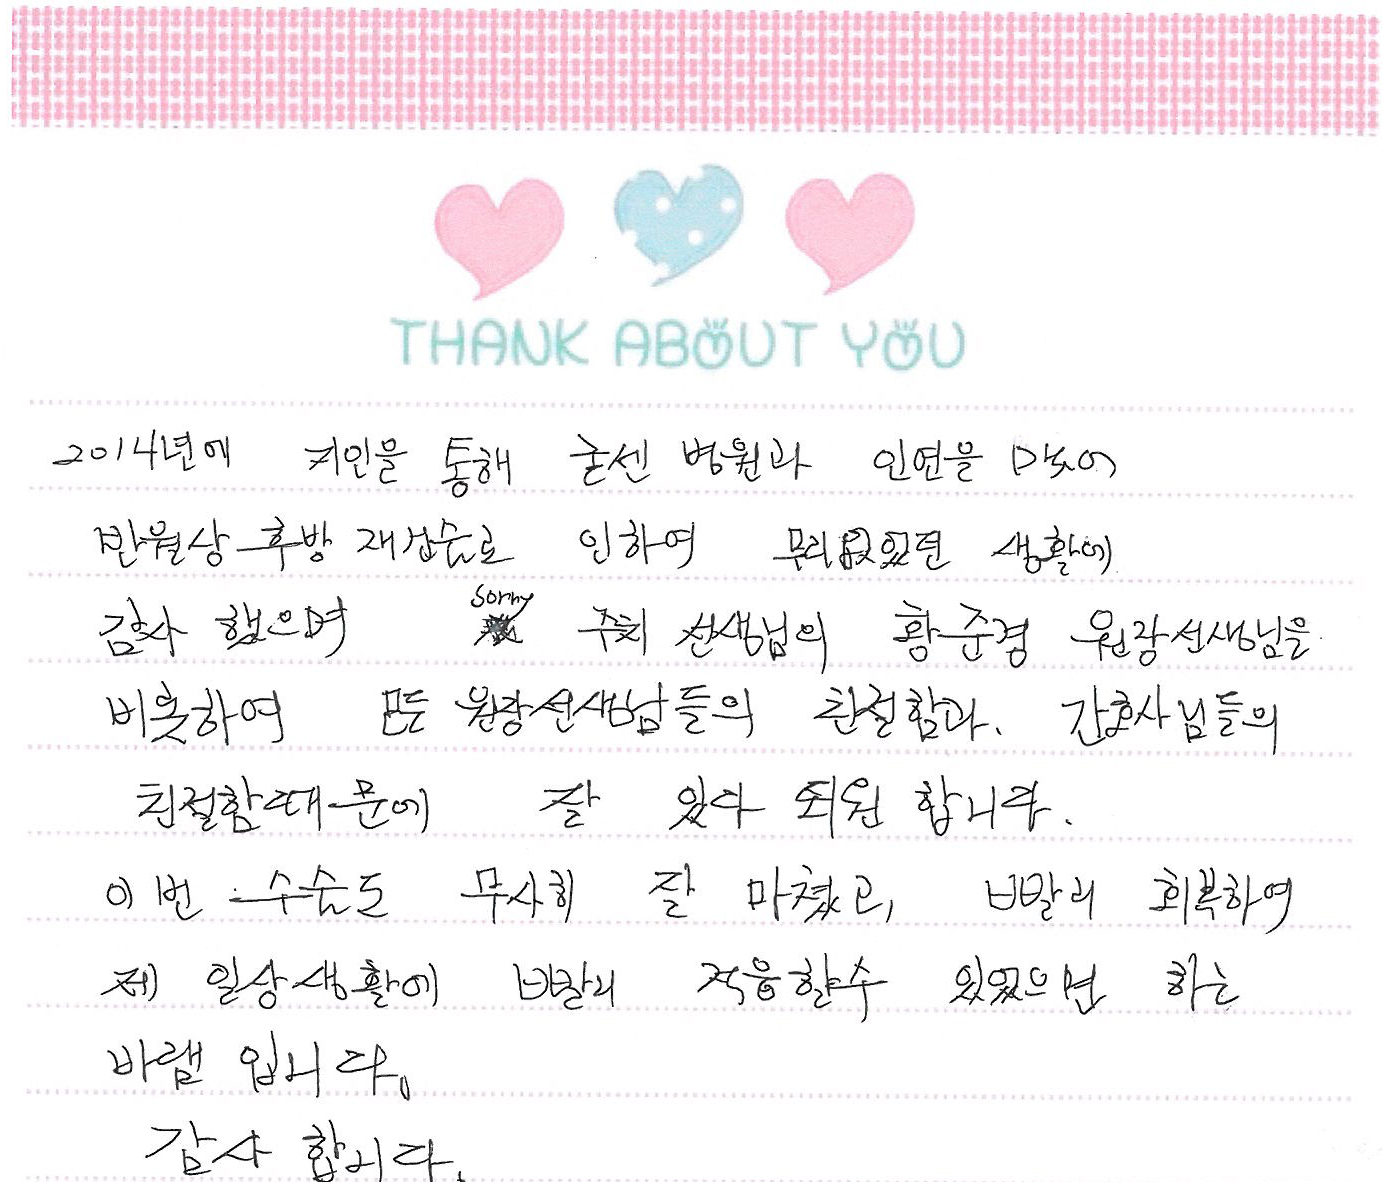 THANK ABOUT YOU
2014년에 지인을 통해 굳센 병원과 인연을 맞어
반월상 후방 재건술로 인하여 무리없었던 생활에
감사 했으며 sorry 주치 선생님의 황준경 원장선생님을
비롯하여 모든 원장선생님들의 친절함과. 간호사님들의
친절함때문에 잘 있다 퇴원 합니다.
이번 수술도 무사히 잘 마쳤고, 빠말리 회복하여
제 일상생활에 빠말리 적응할수 있었으면 하는
바램 입니다.
감사 합니다.